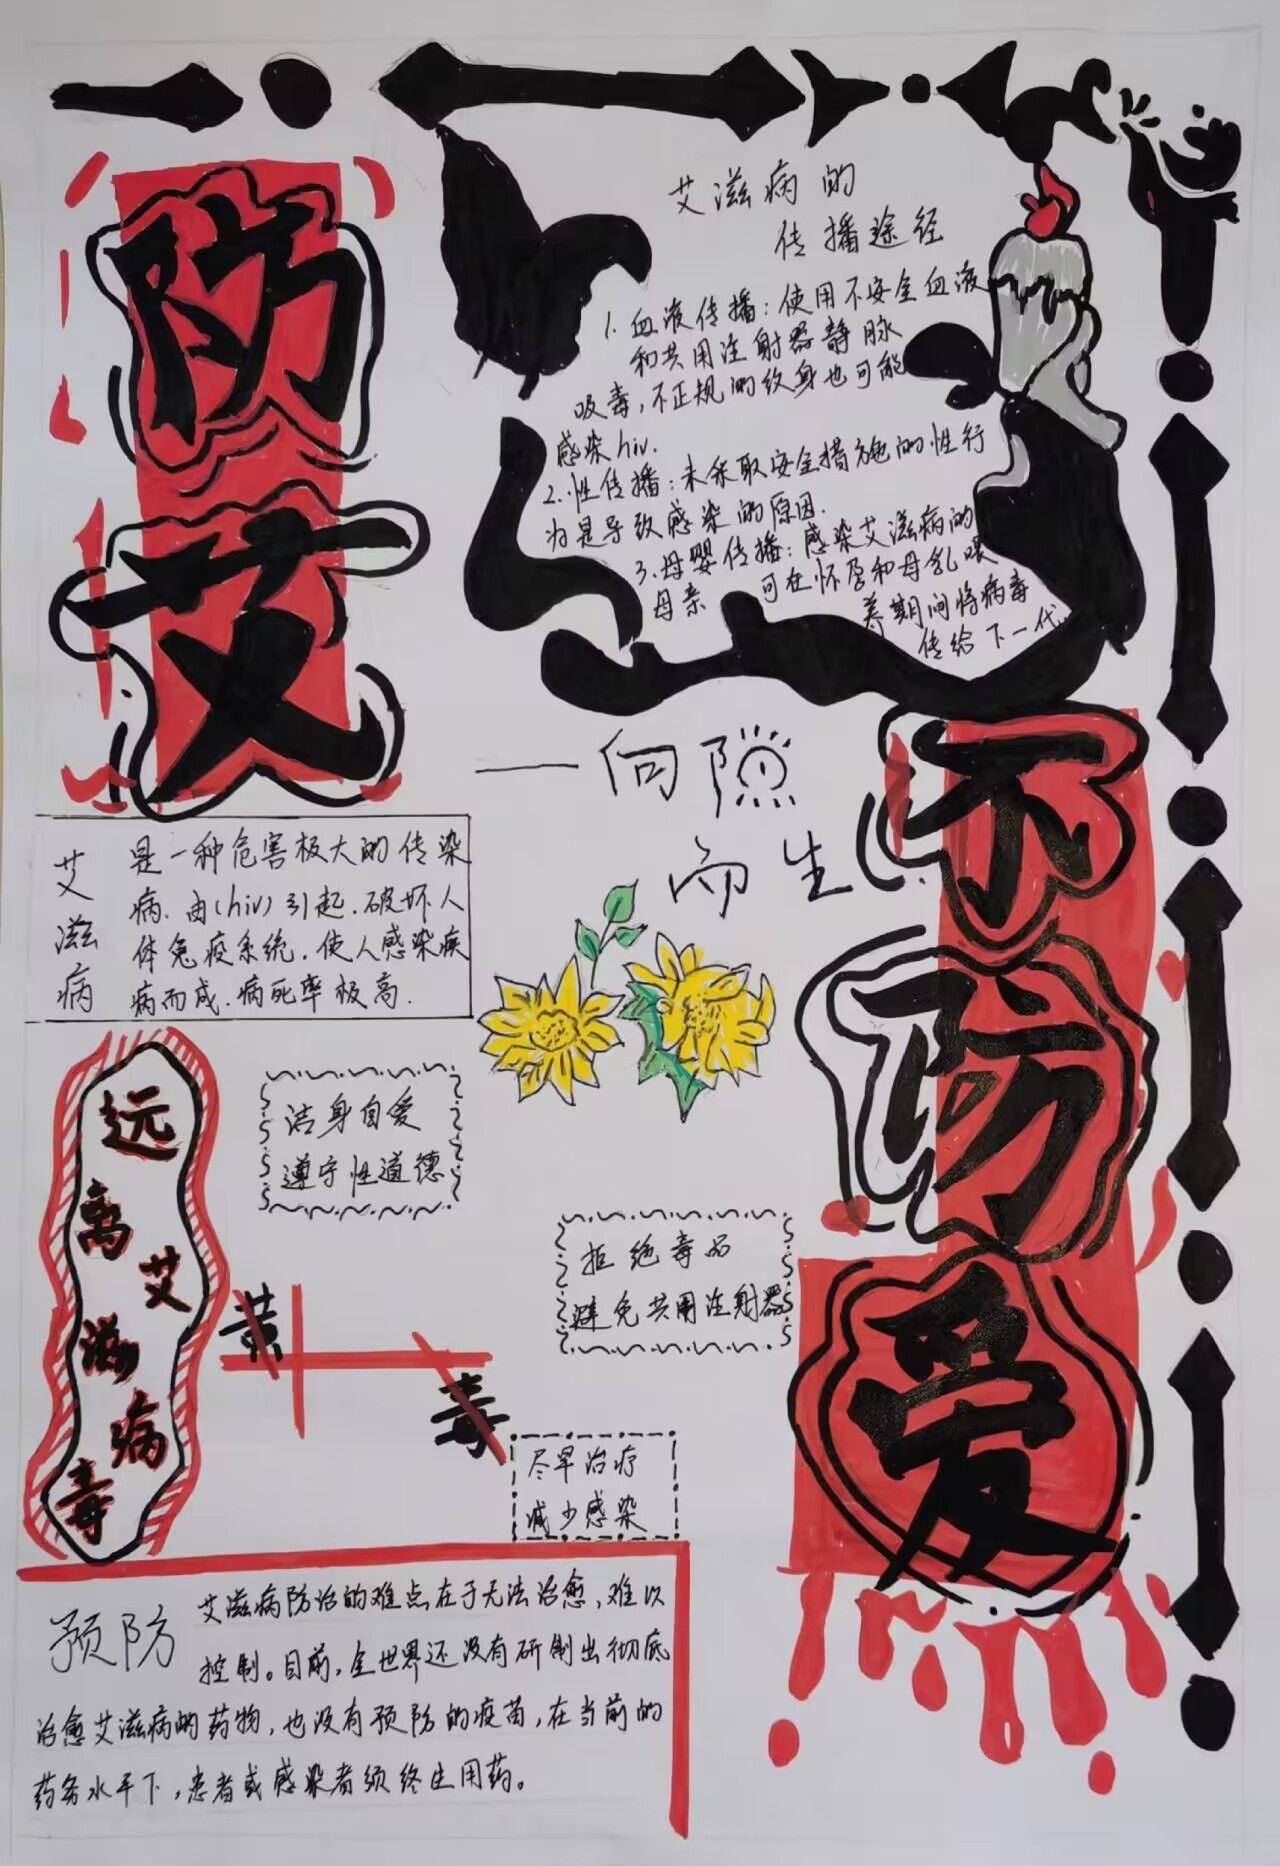 防艾
艾滋病的
传播途经
1.血液传播：使用不安全血液
和共用注射器静脉
吸毒，不正规的纹身也可能
感染hiv.
2.性传播：未采取安全措施的性行
为是导致感染的原因.
3.母婴传播：感染艾滋病的
母亲 可在怀孕和母乳喂
养期间将病毒
传给下一代
一向阳
而生
不防爱
艾滋病
是一种危害极大的传染
病.由(hiv)引起.破坏人
体免疫系统.使人感染疾
病而成.病死率极高.
远离艾滋病毒
洁身自爱
遵守性道德
拒绝毒品
避免共用注射器
黄
毒
尽早治疗
减少感染
预防
艾滋病防治的难点在于无法治愈，难以
控制。目前，全世界还没有研制出彻底
治愈艾滋病的药物，也没有预防的疫苗，在当前的
药务水平下，患者或感染者须终生用药。